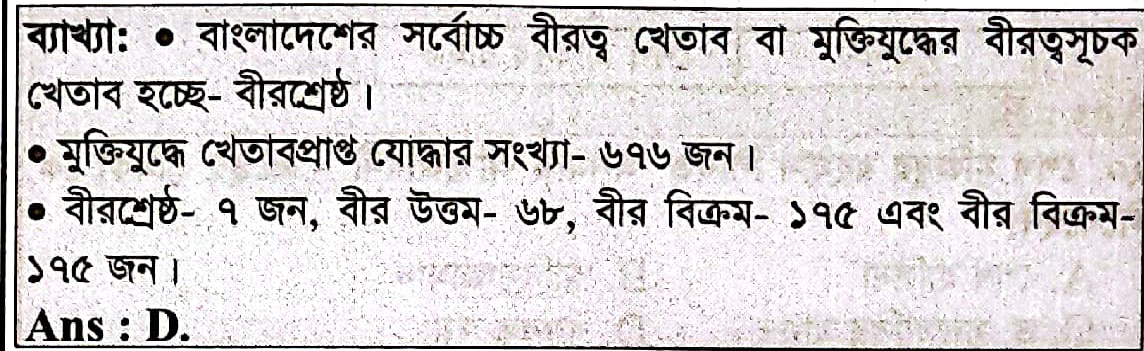 ব্যাখ্যা: ● বাংলাদেশের সর্বোচ্চ বীরত্ব খেতাব বা মুক্তিযুদ্ধের বীরত্বসূচক
খেতাব হচ্ছে- বীরশ্রেষ্ঠ।
● মুক্তিযুদ্ধে খেতাবপ্রাপ্ত যোদ্ধার সংখ্যা- ৬৭৬ জন।
● বীরশ্রেষ্ঠ- ৭ জন, বীর উত্তম- ৬৮, বীর বিক্রম- ১৭৫ এবং বীর বিক্রম-
১৭৫ জন।
Ans : D.